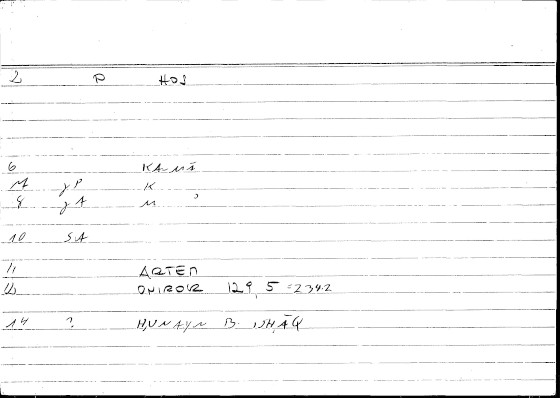 2 P HOJ
6 KAMĀ
M γP K
8 γA M
10 SA
11 ARTEM
12 ONIROKR 129, 5 = 2342
14 ? ḤUNAYN B. ISḤĀQ